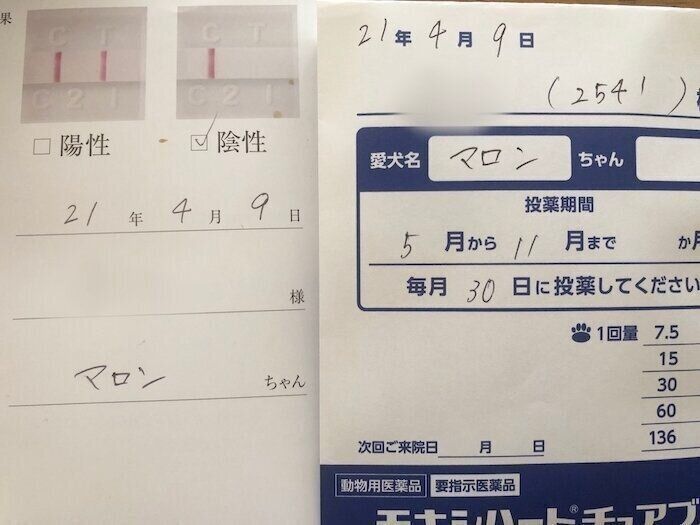 果
C T
C 2 1
C T
C 2 1
□ 陽性
☑ 陰性
21 年 4 月 9 日
様
マロン ちゃん
21 年 4 月 9 日
(2541)
愛犬名 マロン ちゃん
投薬期間
5 月から 11 月まで か月
毎月 30 日に投薬してください
🐾 1回量 7.5
15
30
60
136
次回ご来院日 月 日
動物用医薬品 要指示医薬品
モキシハート®チュアブ